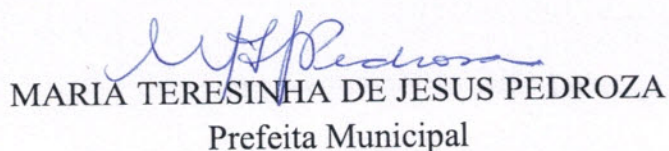 MTJPedroza
MARIA TERESINHA DE JESUS PEDROZA
Prefeita Municipal